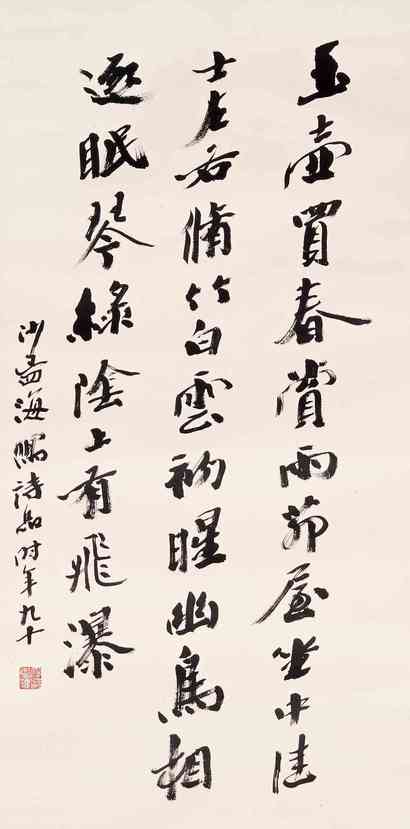 玉壺買春賞雨茆屋坐中佳
士左右脩竹白雲初暒幽鳥相
逐眠琴綠陰上有飛瀑
沙孟海詩品時年九十